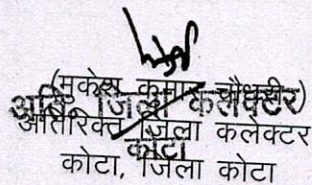 (मुकेश कुमार चौधरी)
अति. जिला कलेक्टर
अतिरिक्त जिला कलेक्टर
कोटा
कोटा, जिला कोटा